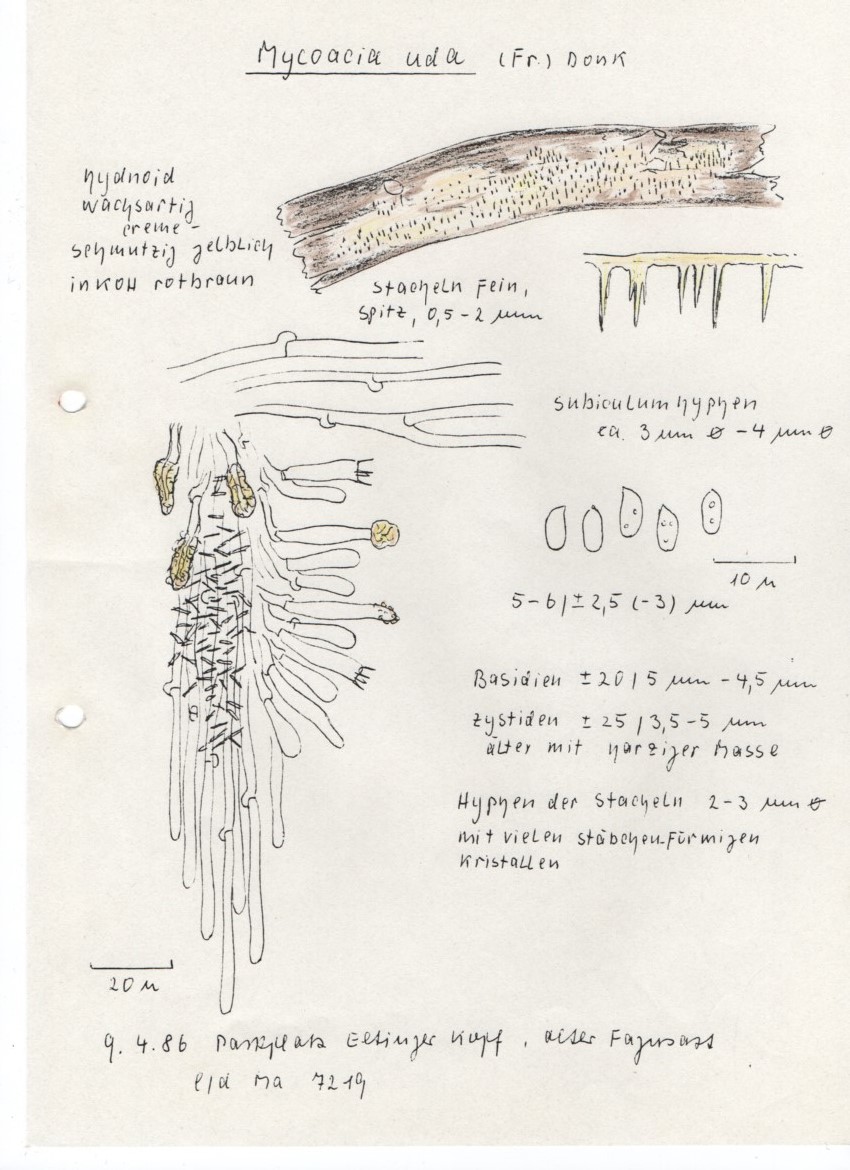 Mycoacia uda (Fr.) Donk
hydnoid
wachsartig
creme-
schmutzig gelblich
in KOH rotbraun
Stacheln fein,
spitz, 0,5-2 mm
Subiculumhyphen
ca. 3 µm ø - 4 µm ø
10 µ
5-6/±2,5 (-3) µm
Basidien ±20/5 µm - 4,5 µm
Zystiden ±25/3,5-5 µm
älter mit harziger Masse
Hyphen der Stacheln 2-3 µm ø
mit vielen stäbchenförmigen
Kristallen
20 µ
9.4.86 Parkplatz Eltinger Kopf, alter Fagusast
l/d Ma 7219